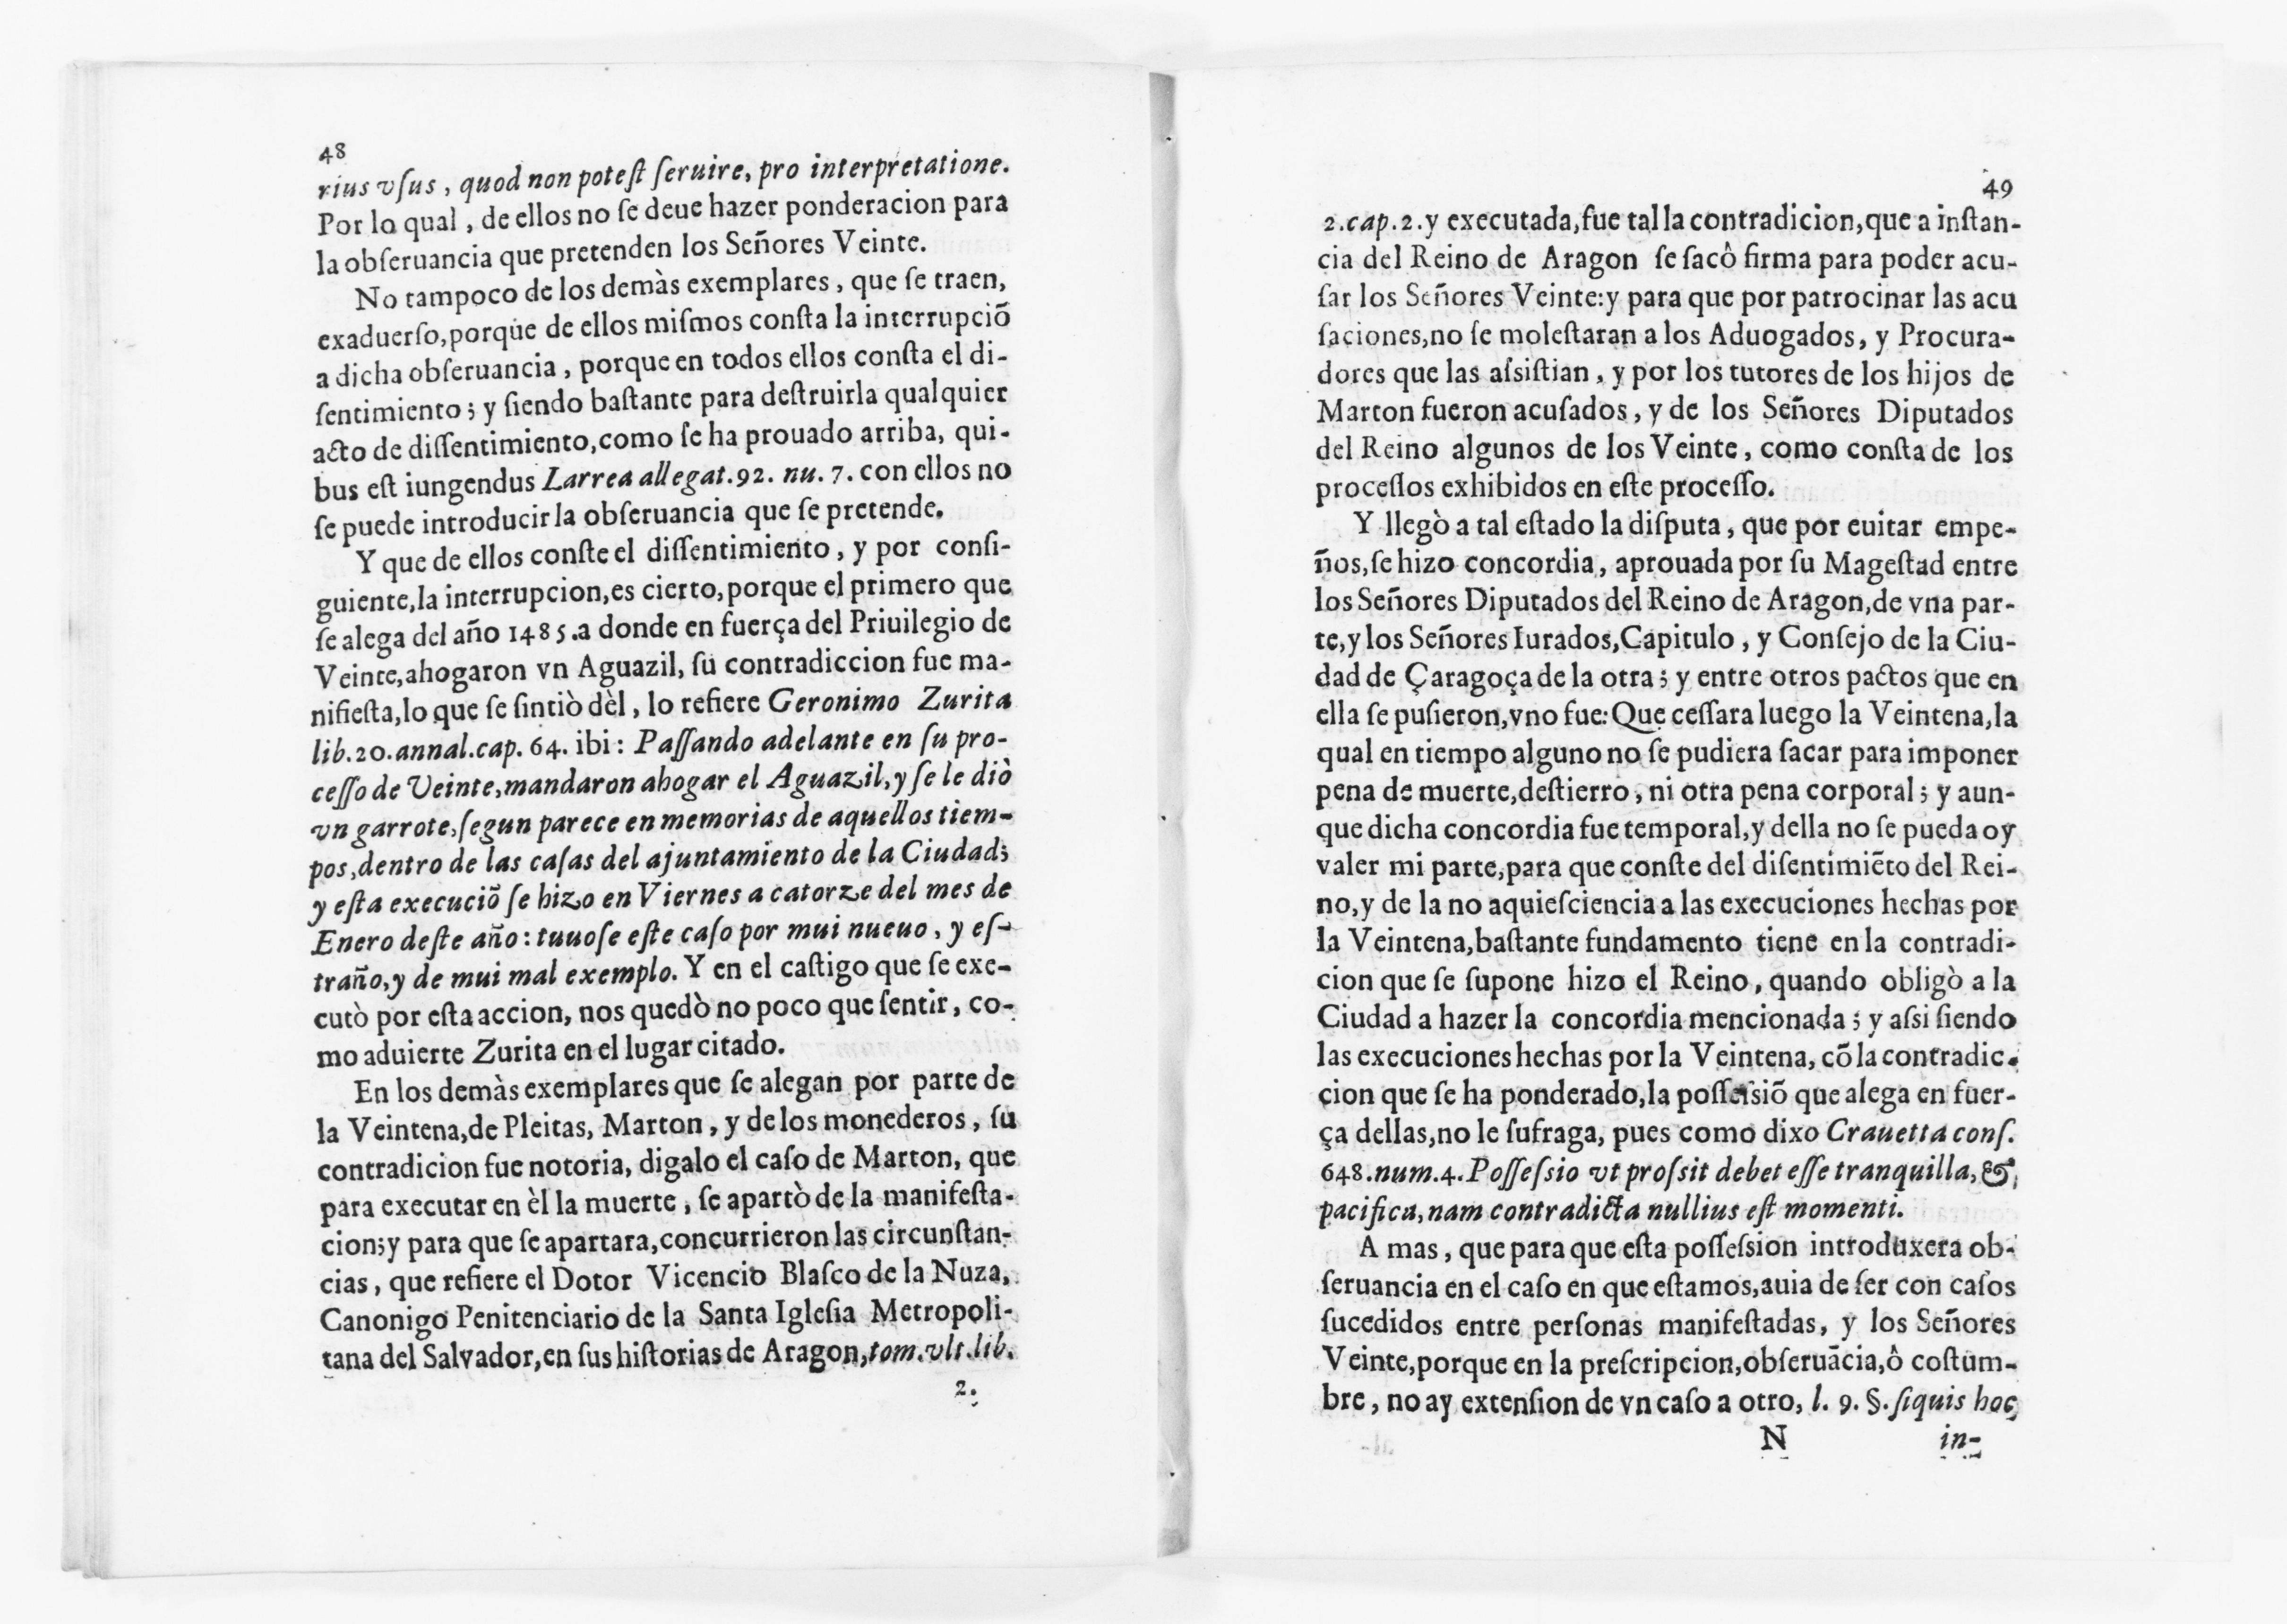 48
rius vſus, quod non poteſt ſeruire, pro interpretatione.
Por lo qual, de ellos no ſe deue hazer ponderacion para
la obſeruancia que pretenden los Señores Veinte.
No tampoco de los demàs exemplares, que ſe traen,
exaduerſo, porque de ellos miſmos conſta la interrupciõ
a dicha obſeruancia, porque en todos ellos conſta el di-
ſentimiento; y ſiendo baſtante para deſtruirla qualquier
acto de diſſentimiento, como ſe ha prouado arriba, qui-
bus eſt iungendus Larrea allegat. 92. nu. 7. con ellos no
ſe puede introducir la obſeruancia que ſe pretende.
Y que de ellos conſte el diſſentimiento, y por conſi-
guiente, la interrupcion, es cierto, porque el primero que
ſe alega del año 1485. a donde en fuerça del Priuilegio de
Veinte, ahogaron vn Aguazil, ſu contradiccion fue ma-
nifieſta, lo que ſe ſintiò dèl, lo refiere Geronimo Zurita
lib. 20. annal. cap. 64. ibi: Paſſando adelante en ſu pro-
ceſſo de Veinte, mandaron ahogar el Aguazil, y ſe le diò
vn garrote, ſegun parece en memorias de aquellos tiem-
pos, dentro de las caſas del ajuntamiento de la Ciudad;
y eſta execuciõ ſe hizo en Viernes a catorze del mes de
Enero deſte año: tuuoſe eſte caſo por mui nueuo, y eſ-
traño, y de mui mal exemplo. Y en el caſtigo que ſe exe-
cutò por eſta accion, nos quedò no poco que ſentir, co-
mo aduierte Zurita en el lugar citado.
En los demàs exemplares que ſe alegan por parte de
la Veintena, de Pleitas, Marton, y de los monederos, ſu
contradicion fue notoria, digalo el caſo de Marton, que
para executar en èl la muerte, ſe apartò de la manifeſta-
cion; y para que ſe apartara, concurrieron las circunſtan-
cias, que refiere el Dotor Vicencio Blaſco de la Nuza,
Canonigo Penitenciario de la Santa Igleſia Metropoli-
tana del Salvador, en ſus hiſtorias de Aragon, tom. vlt. lib.
2.
49
2. cap. 2. y executada, fue tal la contradicion, que a inſtan-
cia del Reino de Aragon ſe ſacô firma para poder acu-
ſar los Señores Veinte: y para que por patrocinar las acu
ſaciones, no ſe moleſtaran a los Aduogados, y Procura-
dores que las aſsiſtian, y por los tutores de los hijos de
Marton fueron acuſados, y de los Señores Diputados
del Reino algunos de los Veinte, como conſta de los
proceſſos exhibidos en eſte proceſſo.
Y llegò a tal eſtado la diſputa, que por euitar empe-
ños, ſe hizo concordia, aprouada por ſu Mageſtad entre
los Señores Diputados del Reino de Aragon, de vna par-
te, y los Señores Iurados, Capitulo, y Conſejo de la Ciu-
dad de Çaragoça de la otra; y entre otros pactos que en
ella ſe puſieron, vno fue: Que ceſſara luego la Veintena, la
qual en tiempo alguno no ſe pudiera ſacar para imponer
pena de muerte, deſtierro, ni otra pena corporal; y aun-
que dicha concordia fue temporal, y della no ſe pueda oy
valer mi parte, para que conſte del diſentimiẽto del Rei-
no, y de la no aquieſciencia a las execuciones hechas por
la Veintena, baſtante fundamento tiene en la contradi-
cion que ſe ſupone hizo el Reino, quando obligò a la
Ciudad a hazer la concordia mencionada; y aſsi ſiendo
las execuciones hechas por la Veintena, cõ la contradic-
cion que ſe ha ponderado, la poſſeſsiõ que alega en fuer-
ça dellas, no le ſufraga, pues como dixo Crauetta conſ.
648. num. 4. Poſſeſsio vt proſsit debet eſſe tranquilla, &
pacifica, nam contradicta nullius eſt momenti.
A mas, que para que eſta poſſeſsion introduxera ob-
ſeruancia en el caſo en que eſtamos, auia de ſer con caſos
ſucedidos entre perſonas manifeſtadas, y los Señores
Veinte, porque en la preſcripcion, obſeruãcia, ô coſtum-
bre, no ay extenſion de vn caſo a otro, l. 9. §. ſiquis hoc
N in-